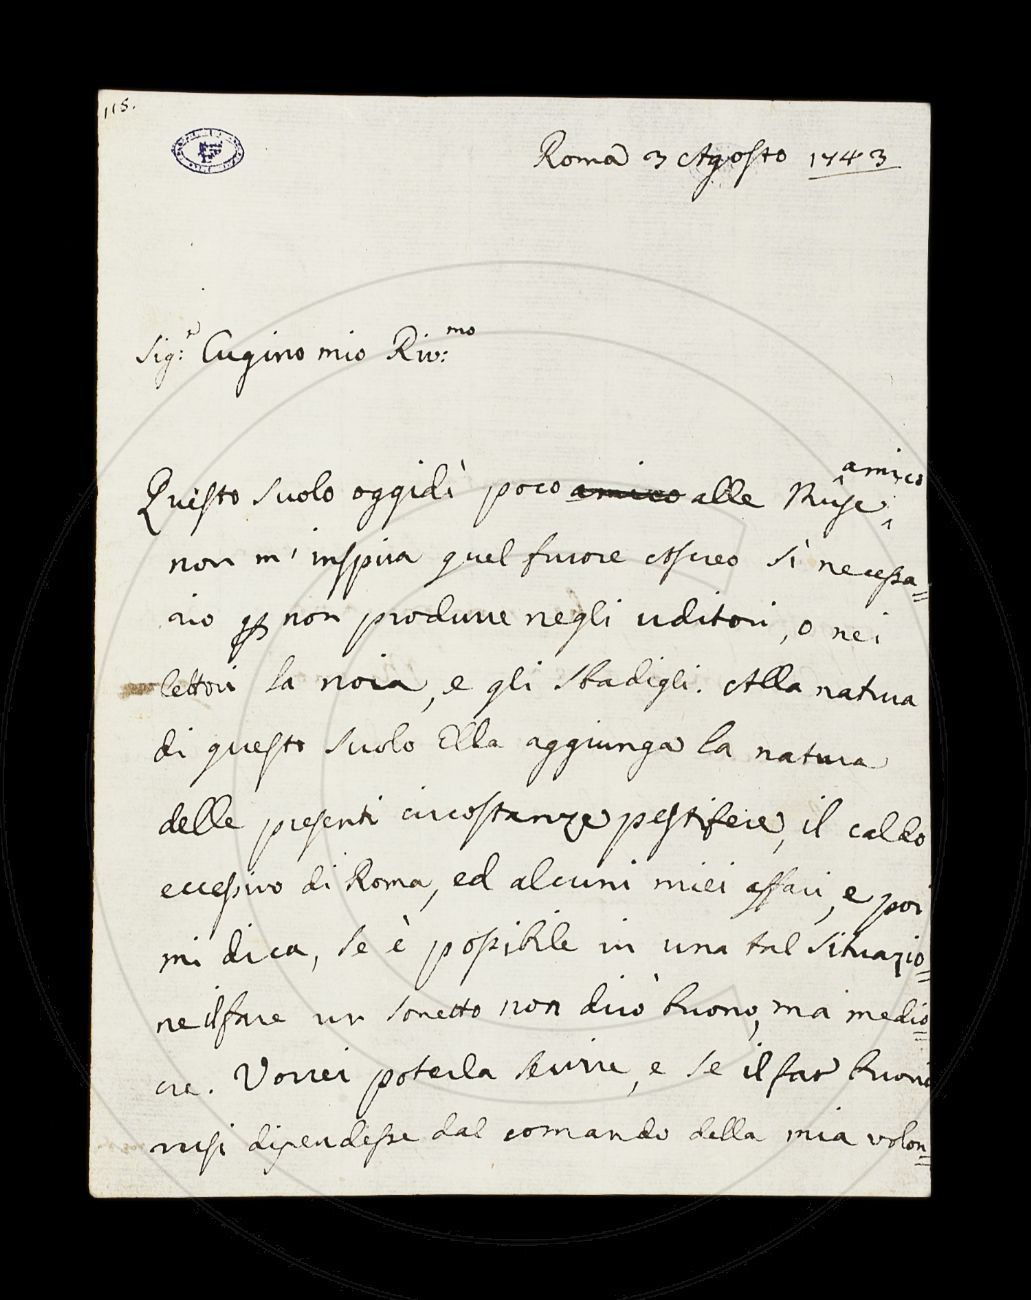 115.
Roma 3 Agosto 1743
Sig:r Cugino mio Riv:mo
amico
Questo suolo oggidì poco amico alle Muse ^
non m'inspira quel furore Ascreo sì necessa=
rio per non produrre negli uditori, o nei
lettori la noia, e gli sbadigli. Alla natura
di questo suolo Ella aggiunga la natura
delle presenti circostanze pestifere, il caldo
eccessivo di Roma, ed alcuni miei affari, e poi
mi dica, se è possibile in una tal situazio=
ne il fare un sonetto non dirò buono, ma medio=
cre. Vorrei poterla servire, e se il far buoni
versi dipendesse dal comando della mia volon=